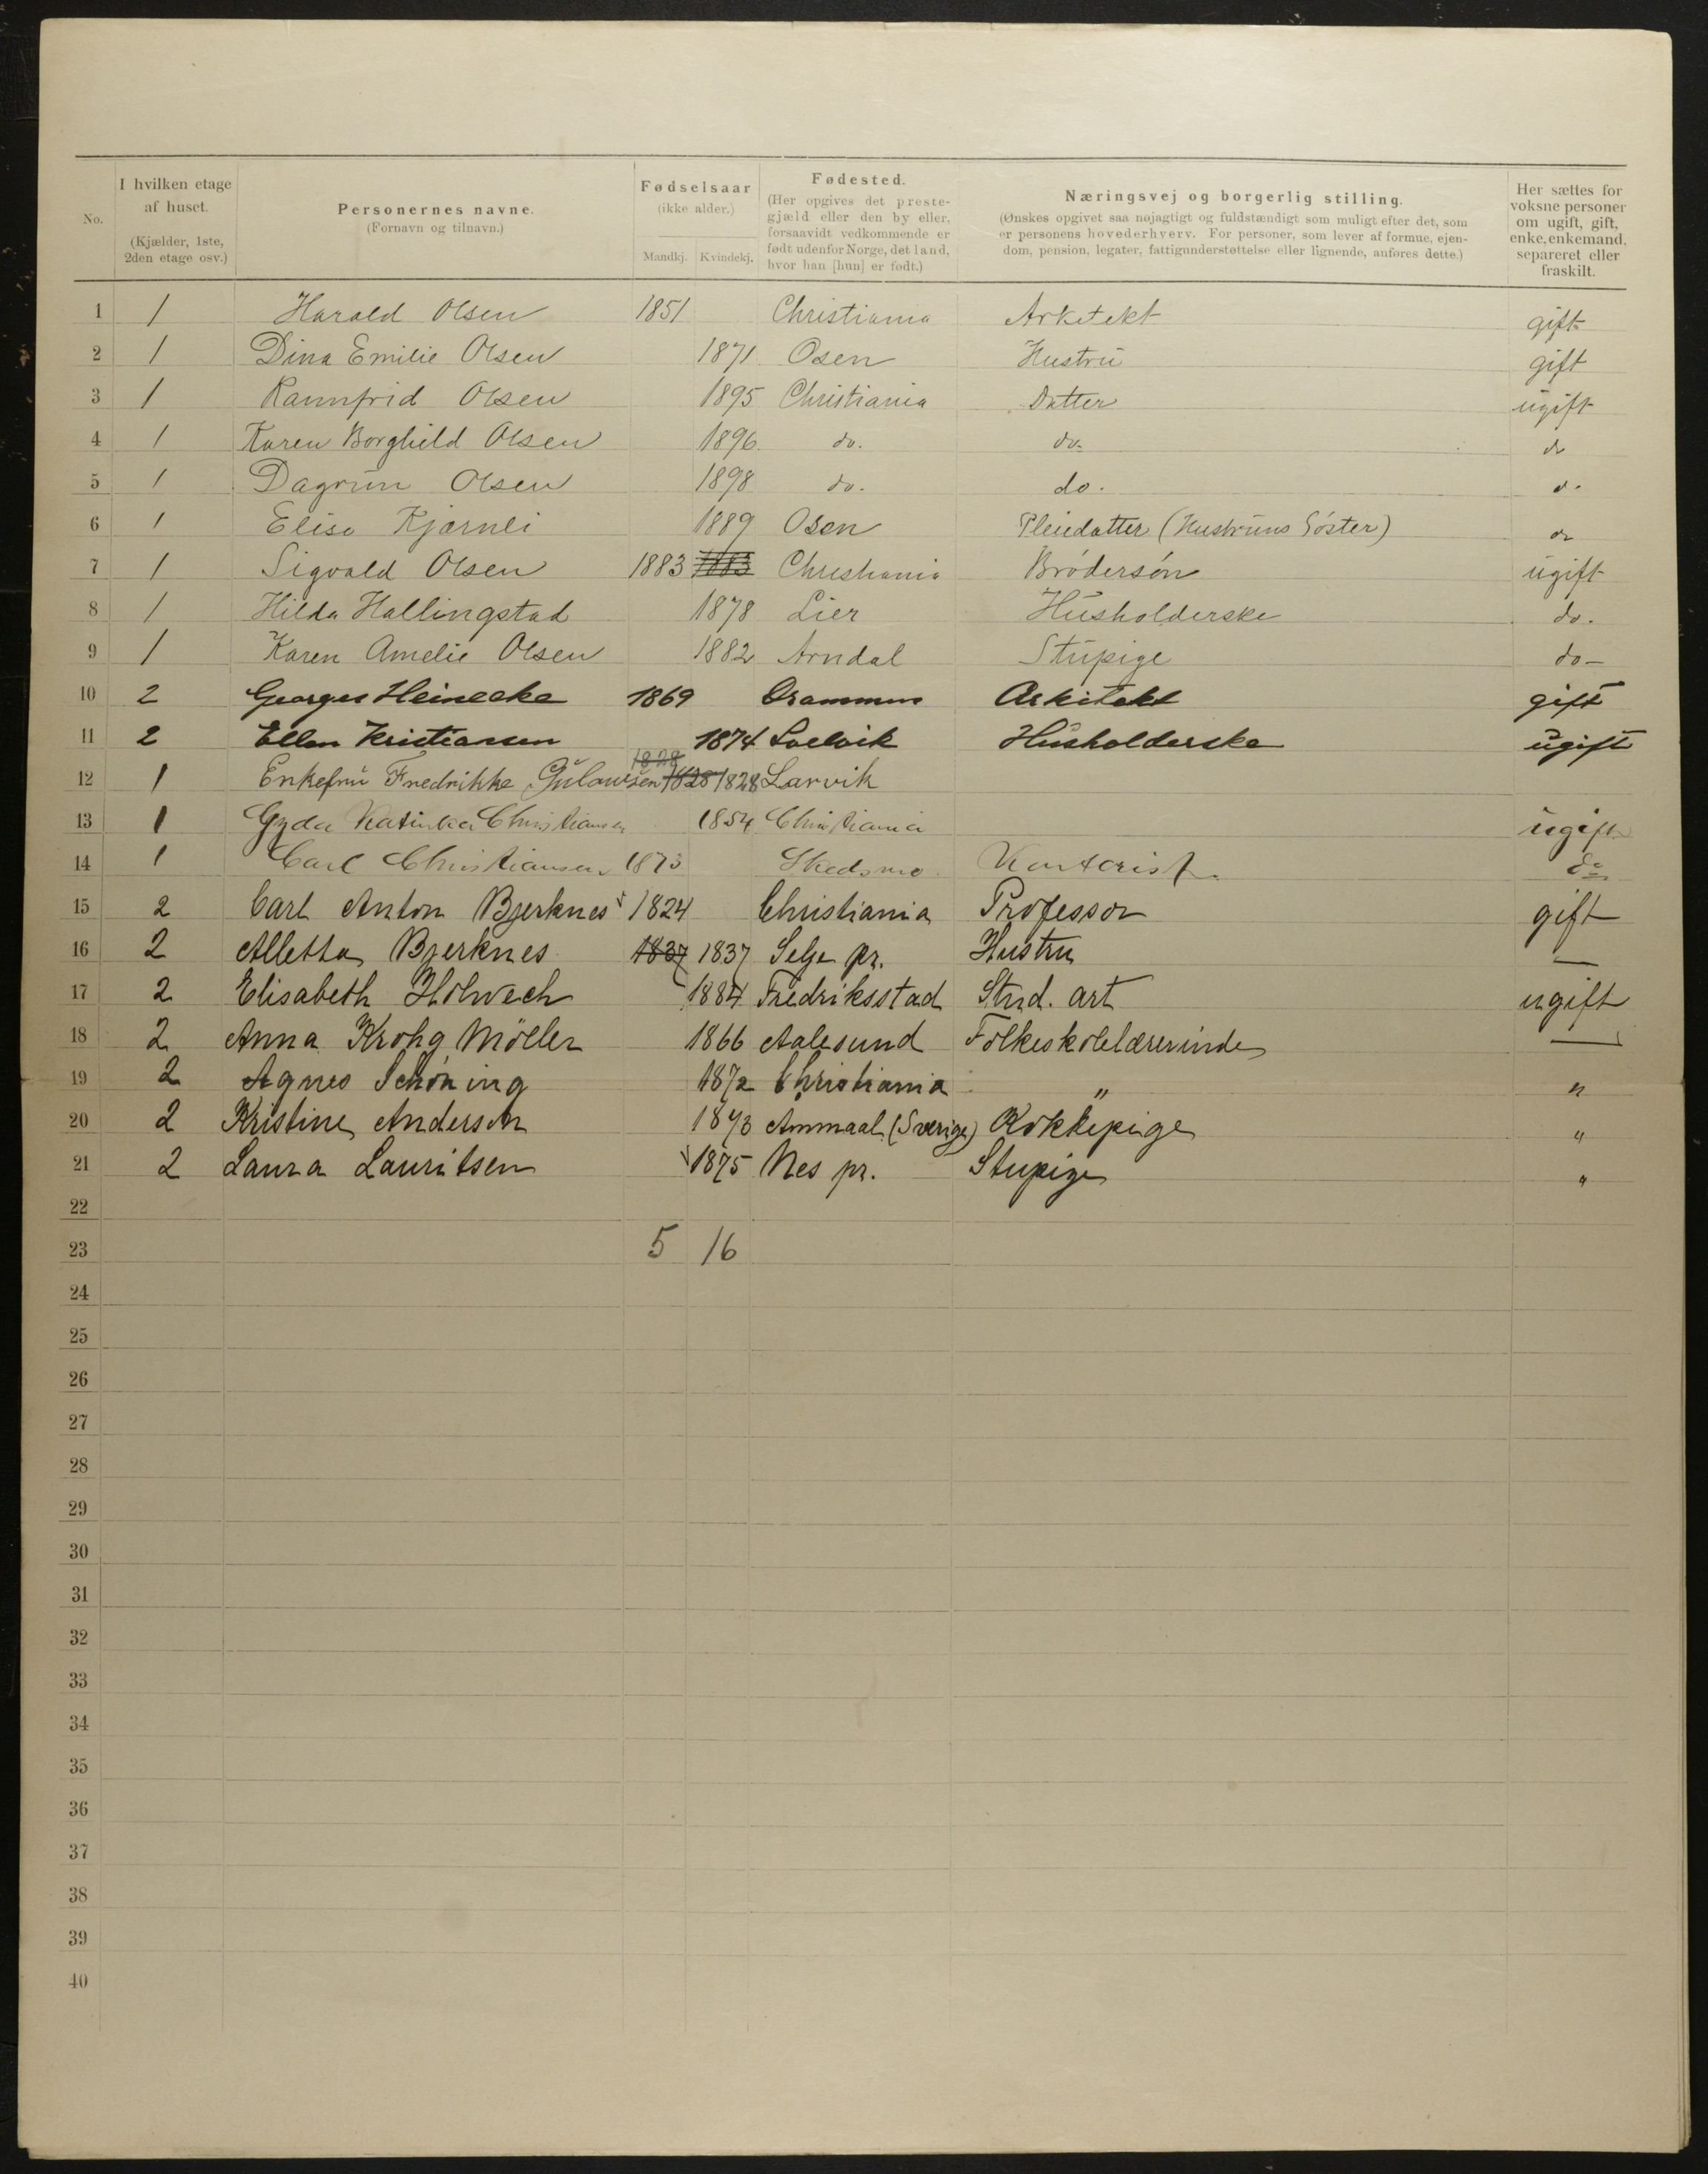 No.
I hvilken etage af huset. (Kjælder, 1ste, 2den etage osv.)
Personernes navne. (Fornavn og tilnavn.)
Fødselsaar (ikke alder.) Mandkj. Kvindekj.
Fødested. (Her opgives det prestegjæld eller den by eller, forsaavidt vedkommende er født udenfor Norge, det land, hvor han [hun] er født.)
Næringsvej og borgerlig stilling. (Ønskes opgivet saa nøjagtigt og fuldstændigt som muligt efter det, som er personens hovederhverv. For personer, som lever af formue, ejendom, pension, legater, fattigunderstøttelse eller lignende, anføres dette.)
Her sættes for voksne personer om ugift, gift, enke, enkemand, separeret eller fraskilt.
1 1 Harald Olsen 1851 Christiania Arkitekt gift
2 1 Dina Emilie Olsen 1871 Osen Hustru gift
3 1 Rannfrid Olsen 1895 Christiania Datter ugift
4 1 Karen Borghild Olsen 1896 do. do. do
5 1 Dagrun Olsen 1898 do. do. do
6 1 Elise Kjærnli 1889 Osen Pleiedatter (Hustruns Søster) do
7 1 Sigvald Olsen 1883 1883 Christiania Brodersøn ugift
8 1 Hilda Hallingstad 1878 Lier Husholderske do.
9 1 Karen Amelie Olsen 1882 Arndal Stupige do
10 2 Georges Heinecke 1869 Drammen Arkitekt gift
11 2 Ellen Kristiansen 1874 Svelvik Husholderske ugift
12 1 Enkefru Fredrikke 1828 1828 1828 Larvik
13 1 Gyda Katinka Christiansen 1854 Christiania ugift
14 1 Carl Christiansen 1873 Skedsmo Kontorist do
15 2 Carl Anton Bjerknes 1824 Christiania Professor gift
16 2 Alletta Bjerknes 1837 1837 Selje pr. Hustru —
17 2 Elisabeth Holwech 1884 Fredriksstad Stud. art ugift
18 2 Anna Krohg Møller 1866 Aalesund Folkeskolelærerinde —
19 2 Agnes Schøning 1872 Christiania " "
20 2 Kristine Anderson 1873 Ammaal (Sverige) Kokkepige "
21 2 Laura Lauritsen 1875 Nes pr. Stupige "
22
23 5 16
24
25
26
27
28
29
30
31
32
33
34
35
36
37
38
39
40